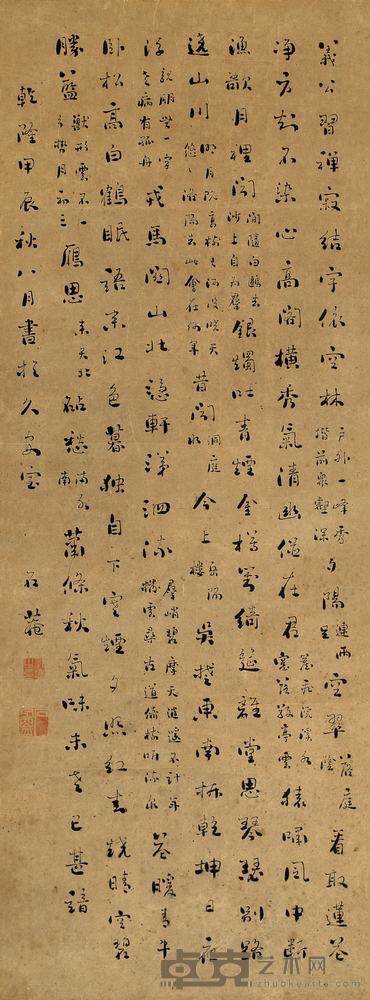 義公習禪寂結宇依空林戶外一峰秀階前衆壑深夕陽連雨足空翠落庭陰看取蓮花
净方知不染心高閣橫秀氣清幽併在君簷飛宛溪水窗落敬亭雲猿嘯風中斷
漁歌月裡聞閒隨白鷗去沙上自為群銀燭吐青煙金樽對綺筵離堂思琴瑟別路
遶山川明月隱高樹長河沒曉天悠悠洛陽去此會在何年昔聞洞庭水今上岳陽樓吳楚東南坼乾坤日夜
浮親朋無一字老病有孤舟戎馬關山北憑軒涕泗流群峭碧摩天逍遙不計年撥雲尋古道倚樹聽流泉花暖青牛
臥松高白鶴眠語來江色暮獨自下寒煙夕照紅於燒晴空碧
勝藍獸形雲不一弓勢月初三雁思來天北砧愁滿水南蕭條秋氣味未老已甚諳
乾隆甲辰秋八月書於久安室 石菴
卓克艺术网
www.zhuokearts.com